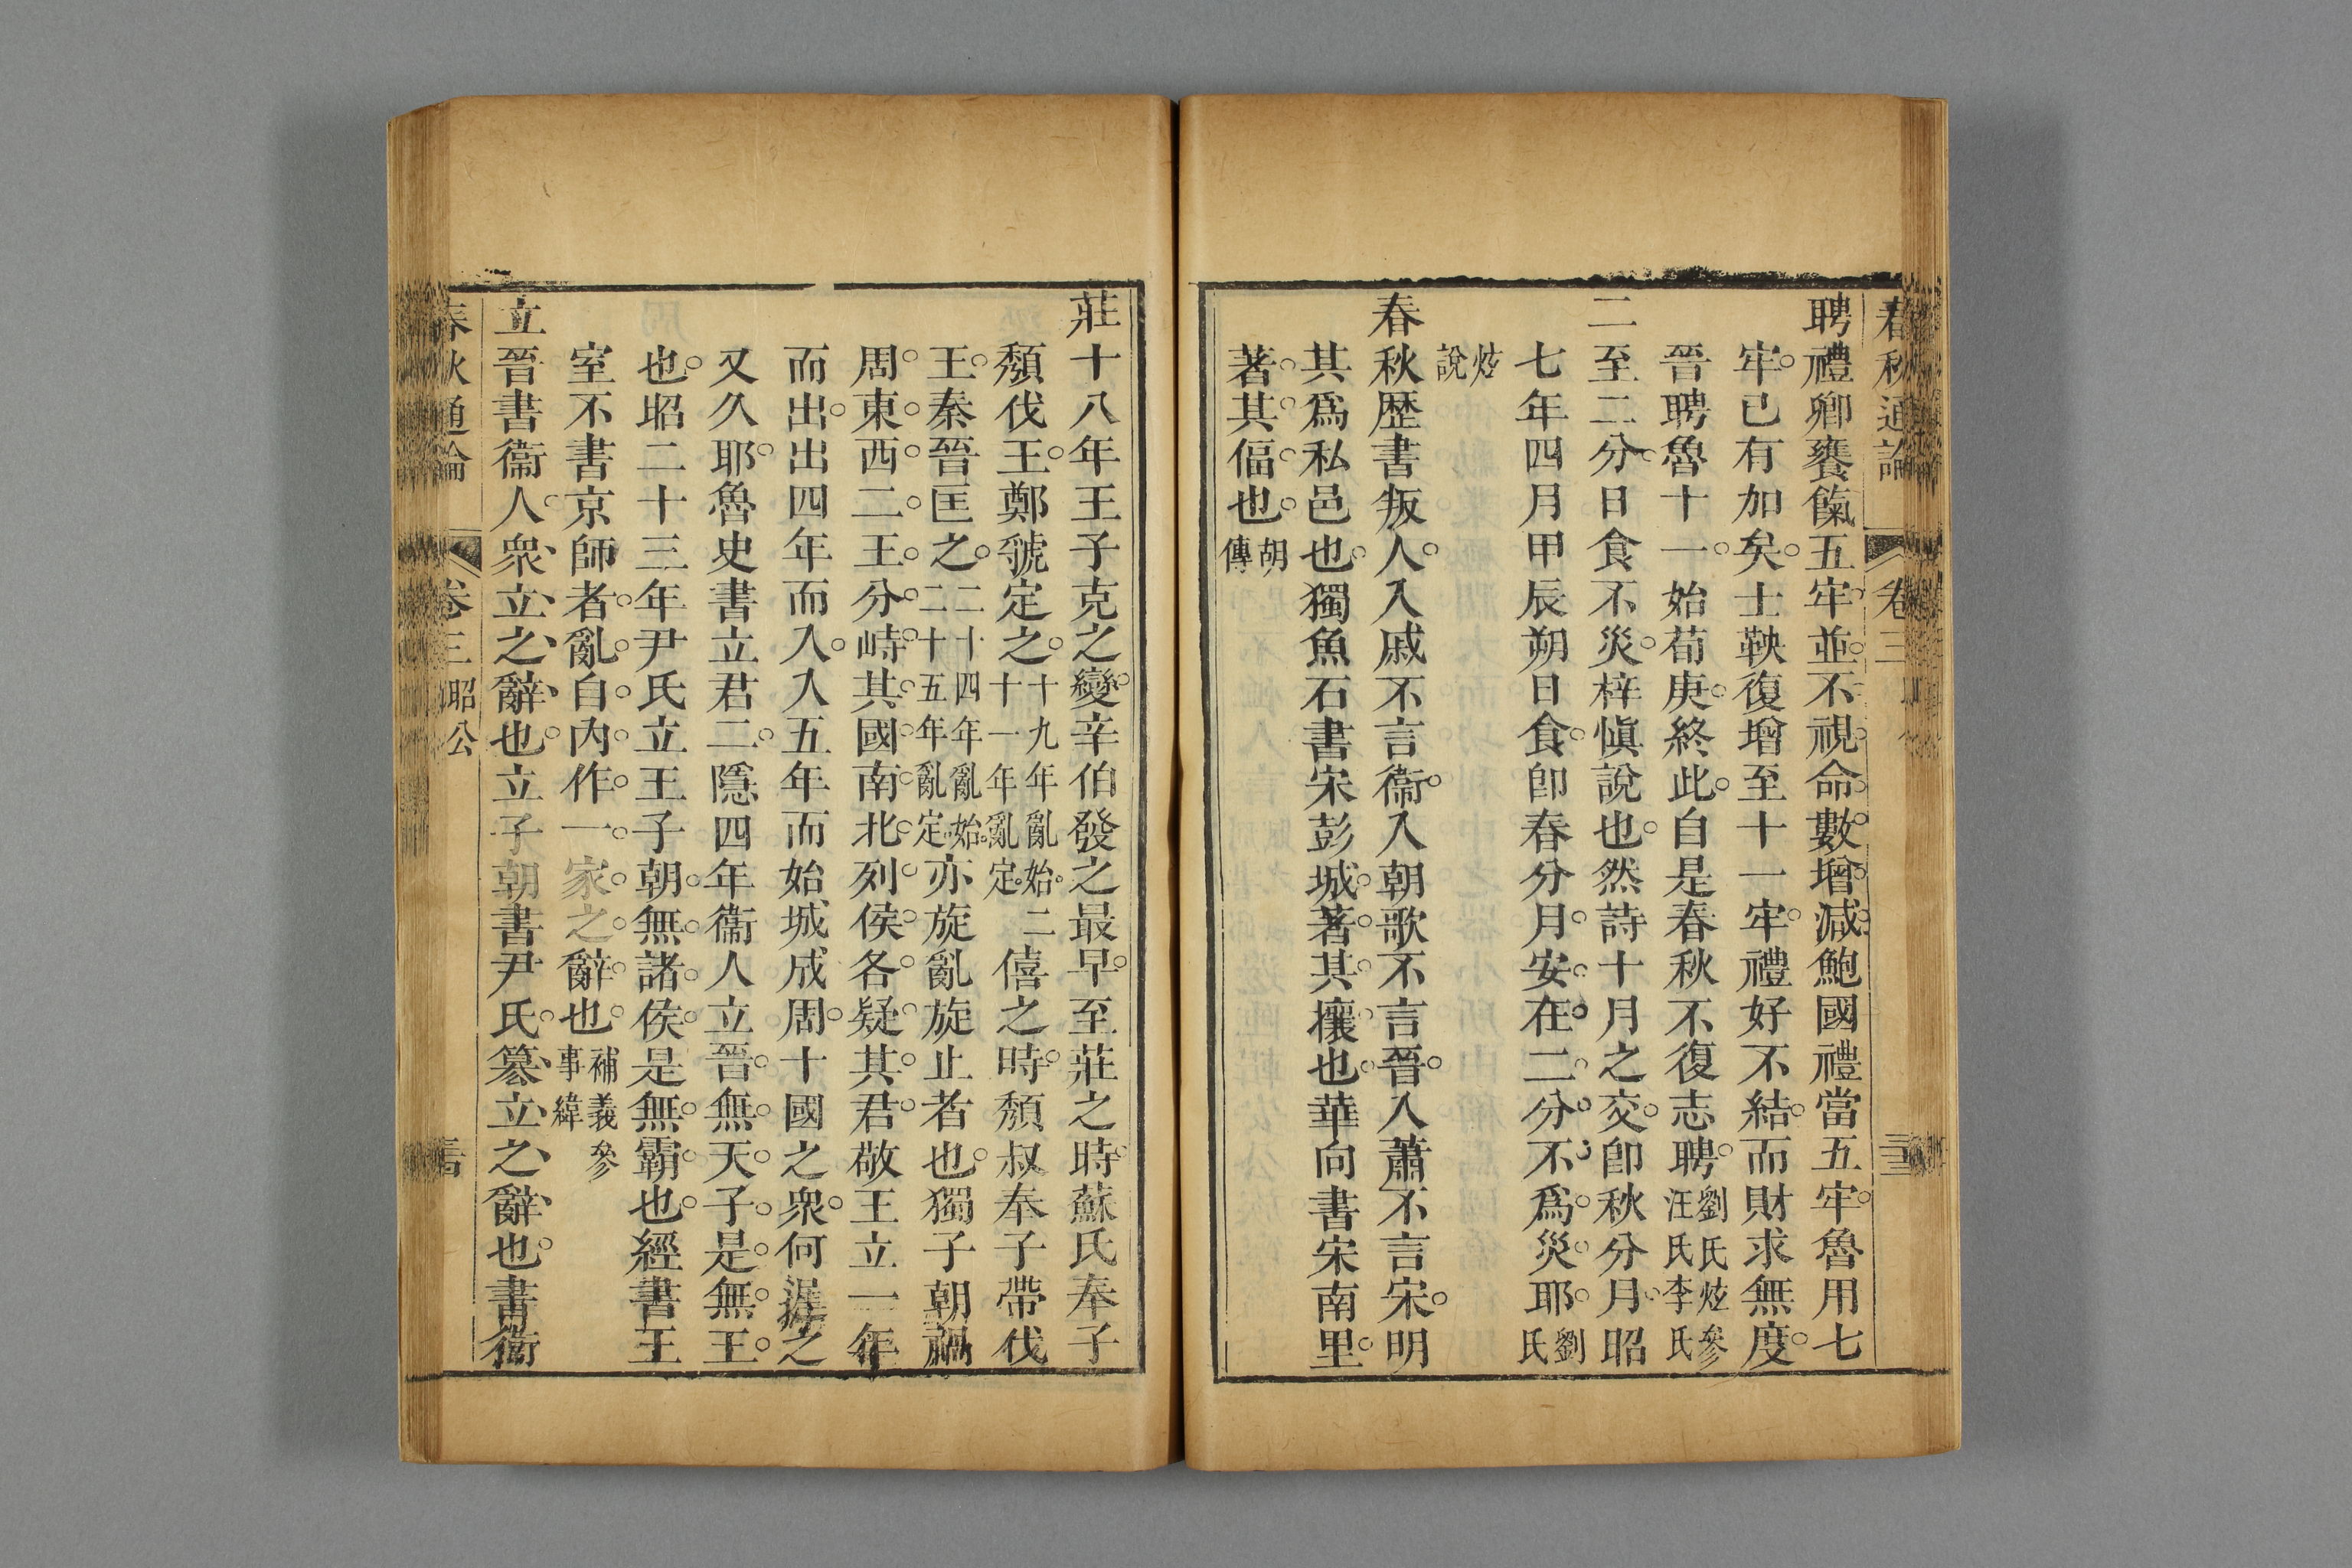 春秋通論 卷三
聘禮卿饔餼五牢並不視命數增減鮑國禮當五牢魯用七
牢已有加矣士鞅復增至十一牢禮好不結而財求無度
晉聘魯十一始荀庚終此自是春秋不復志聘劉氏炫參汪氏李氏
二至二分日食不災梓愼說也然詩十月之交卽秋分月昭
七年四月甲辰朔日食卽春分月安在二分不爲災耶劉氏
炫說
春秋歷書叛人入戚不言衞入朝歌不言晉入蕭不言宋明
其爲私邑也獨魚石書宋彭城著其攘也華向書宋南里
著其偪也胡傳
莊十八年王子克之變辛伯發之最早至莊之時蘇氏奉子
頹伐王鄭虢定之十九年亂始二十一年亂定僖之時頹叔奉子帶伐
王秦晉匡之二十四年亂始二十五年亂定亦旋亂旋止者也獨子朝禍
周東西二王分峙其國南北列侯各疑其君敬王立一年
而出出四年而入入五年而始城成周十國之衆何遲之
又久耶魯史書立君二隱四年衞人立晉無天子是無王
也昭二十三年尹氏立王子朝無諸侯是無霸也經書王
室不書京師者亂自內作一家之辭也補義參事緯
立晉書衞人衆立之辭也立子朝書尹氏簒立之辭也書衞
春秋通論 卷三 昭公